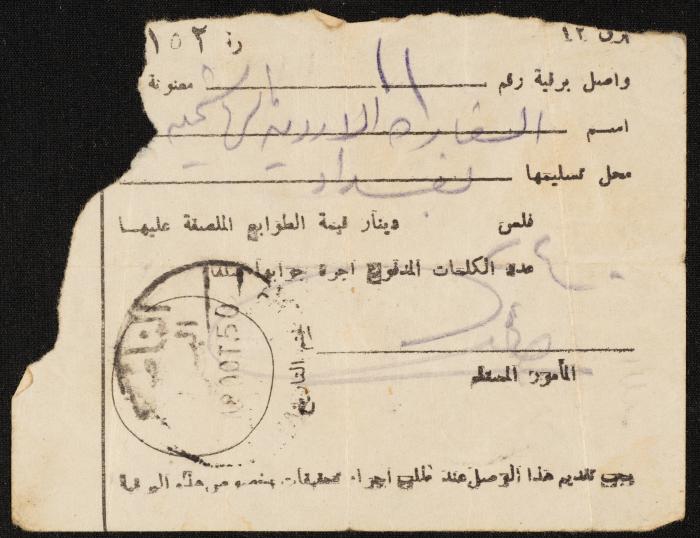 برق ٤٢ رة ١٥٢
واصل برقية رقم ١١ معنونة
اسم السفارة الاردنية الهاشمية
محل تسليمها بغداد
فلس دينار قيمة الطوابع الملصقة عليها
عدد الكلمات المدفوع اجرة جوابها سلفا
ختم التاريخ
18 OCT. 50
المأمور المستلم
يجب تقديم هذا الوصل عند طلب اجراء تحقيقات بخصوص هذه البرقية